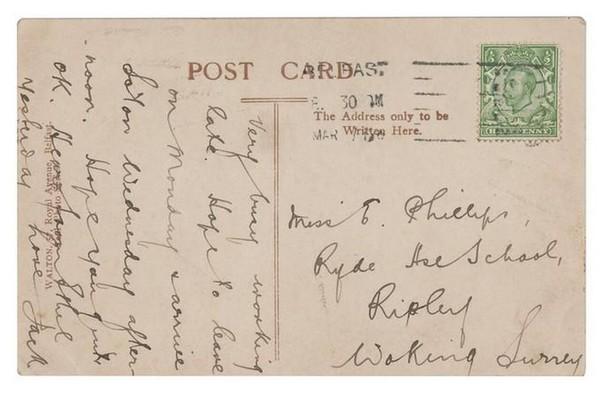 POST CARD
The Address only to be
Written Here.
BELFAST
30 PM
MAR
HALFPENNY
WALTON, Royal Avenue, Belfast
Very busy working
late. Hope to leave
on Monday & arrive
Wednesday after-
noon. Hope you quite
OK. News from Ethel
Yesterday Love Jack
Miss E. Phillips,
Ryde Hse School,
Ripley
Woking Surrey